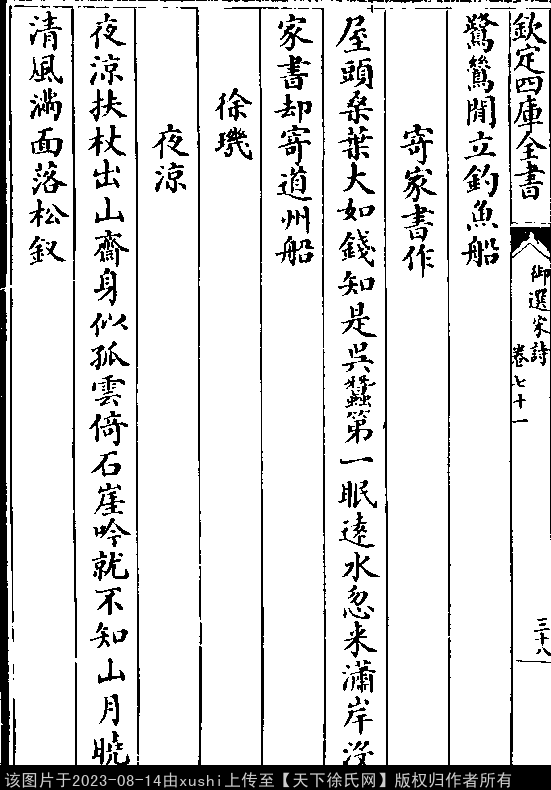 欽定四庫全書
御選宋詩
卷七十一
三十八
鷺鷥閒立釣魚船
寄家書作
屋頭桑葉大如錢知是吳蠶第一眠逺水忽来瀟岸
家書却寄道州船
徐璣
夜涼
夜涼扶杖出山齋身似孤雲倚石崖吟就不知山月曉
清風滿面落松釵
该图片于2023-08-14由xushi上传至【天下徐氏网】版权归作者所有